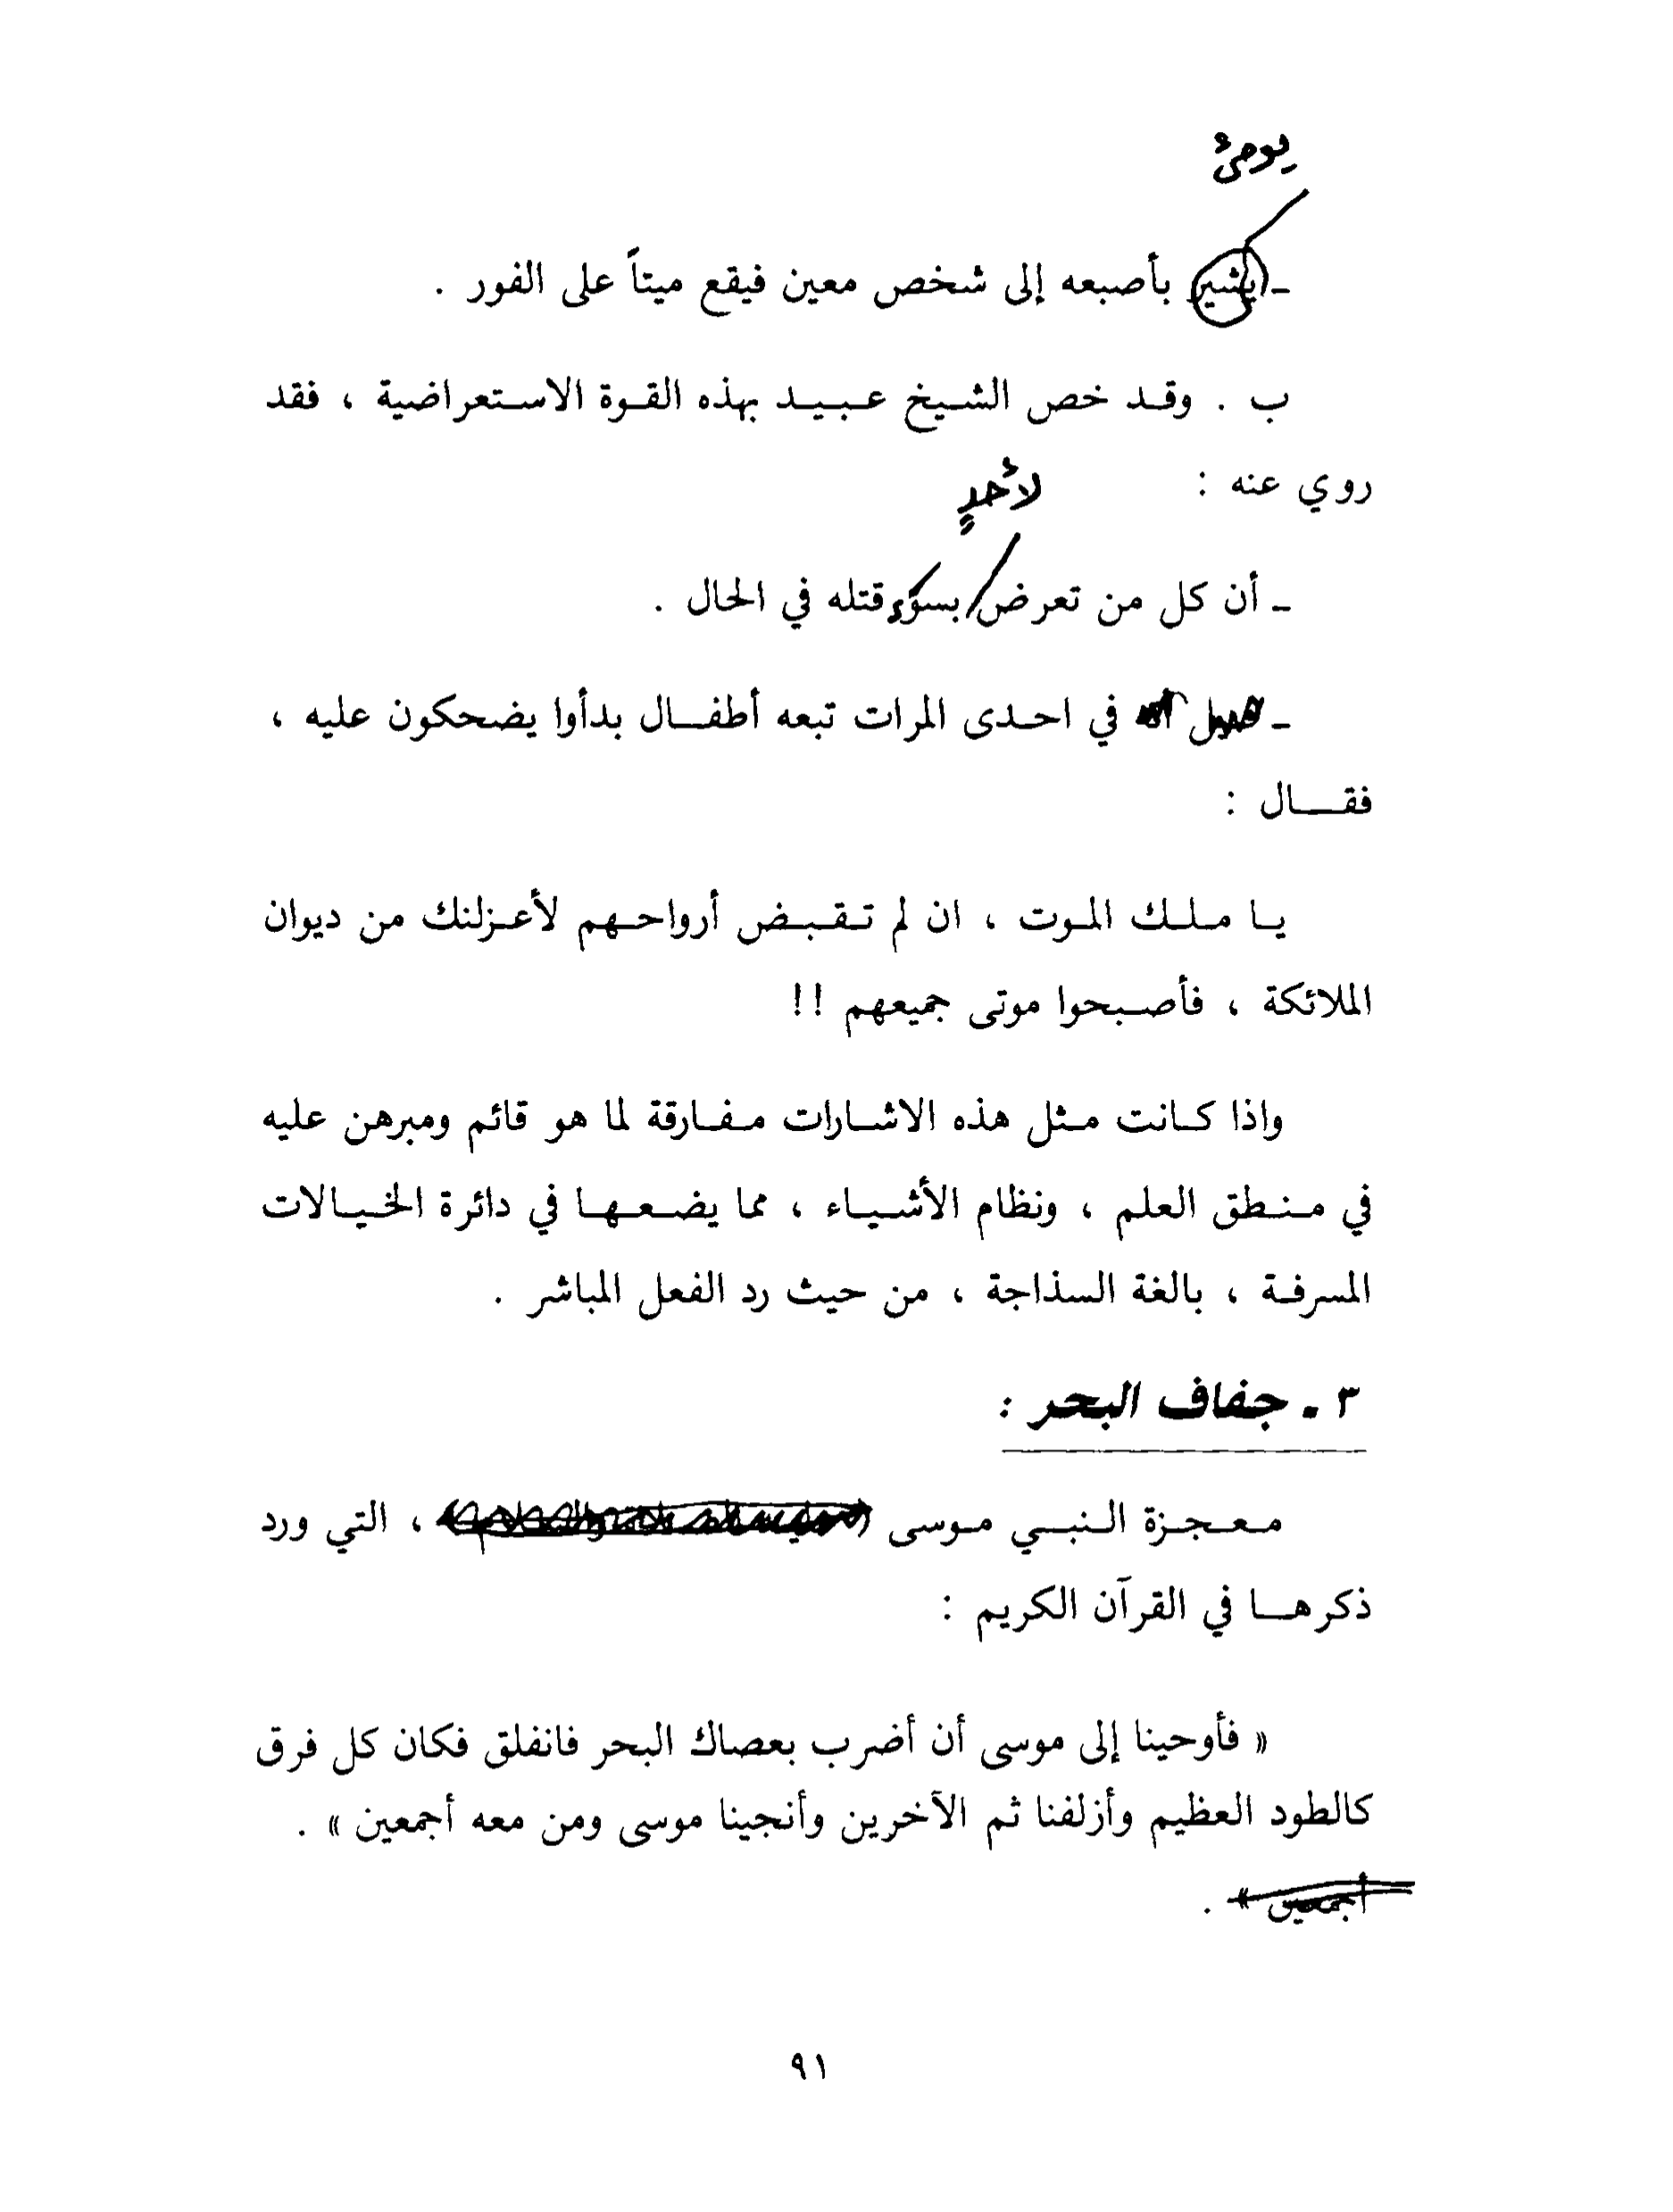 يومئ
ـ يشير بأصبعه إلى شخص معين فيقع ميتاً على الفور .
ب . وقد خص الشيخ عبيد بهذه القوة الاستعراضية ، فقد
روي عنه :
لأحدٍ
ـ أن كل من تعرض بسوء قتله في الحال .
ـ في احدى المرات تبعه أطفال بدأوا يضحكون عليه ،
فقال :
يا ملك الموت ، ان لم تقبض أرواحهم لأعزلنك من ديوان
الملائكة ، فأصبحوا موتى جميعهم !!
واذا كانت مثل هذه الاشارات مفارقة لما هو قائم ومبرهن عليه
في منطق العلم ، ونظام الأشياء ، مما يضعها في دائرة الخيالات
المسرفة ، بالغة السذاجة ، من حيث رد الفعل المباشر .
٣ ـ جفاف البحر :
معجزة النبي موسى ، التي ورد
ذكرها في القرآن الكريم :
« فأوحينا إلى موسى أن أضرب بعصاك البحر فانفلق فكان كل فرق
كالطود العظيم وأزلفنا ثم الآخرين وأنجينا موسى ومن معه أجمعين » .
أجمعين » .
٩١